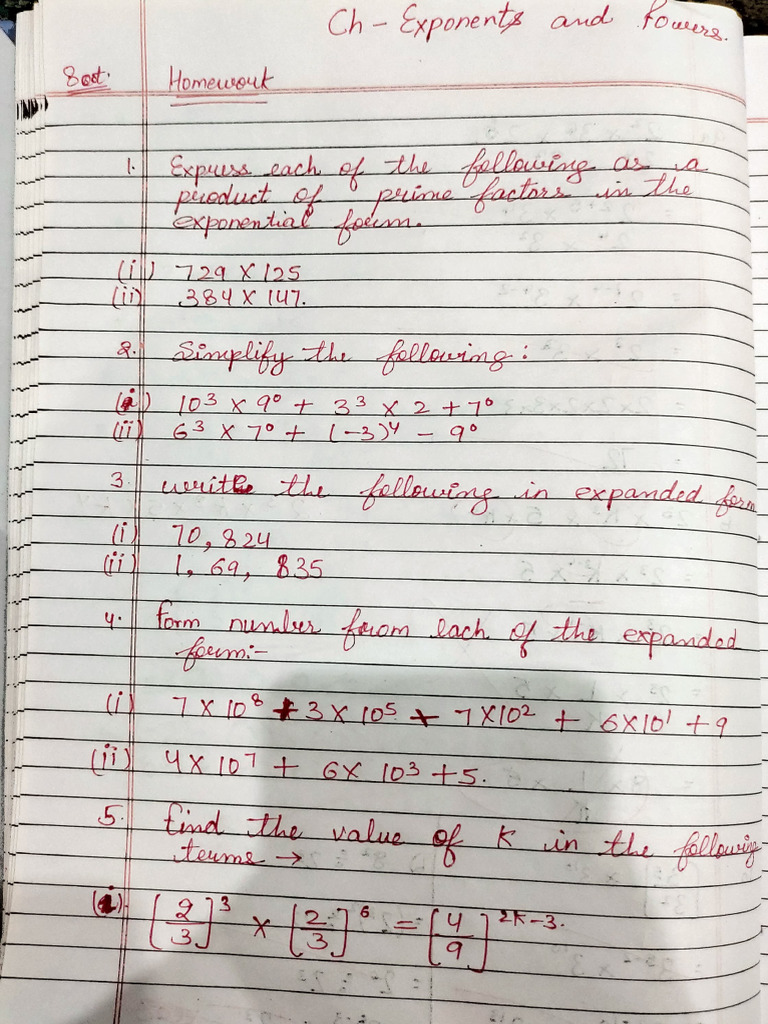 Ch - Exponents and Powers.
8 oct. Homework
1. Express each of the following as a
product of prime factors in the
exponential form.
(i) 729 × 125
(ii) 384 × 147.
2. Simplify the following :
(i) 10³ × 9⁰ + 3³ × 2 + 7⁰
(ii) 6³ × 7⁰ + (-3)⁴ - 9⁰
3. write the following in expanded form
(i) 70, 824
(ii) 1, 69, 835
4. form number from each of the expanded
form:-
(i) 7 × 10⁸ + 3 × 10⁵ + 7 × 10² + 6 × 10¹ + 9
(ii) 4 × 10⁷ + 6 × 10³ + 5.
5. find the value of K in the following
terms →
(i) [2/3]³ × [2/3]⁶ = [4/9]²ᴷ⁻³.